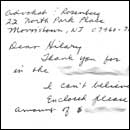 Advocat: Rosenberg
22 North Park Place
Morristown, NJ 07960-7
Dear Hilary
Thank you for
in the
I can't believe
Enclosed please
amount of $